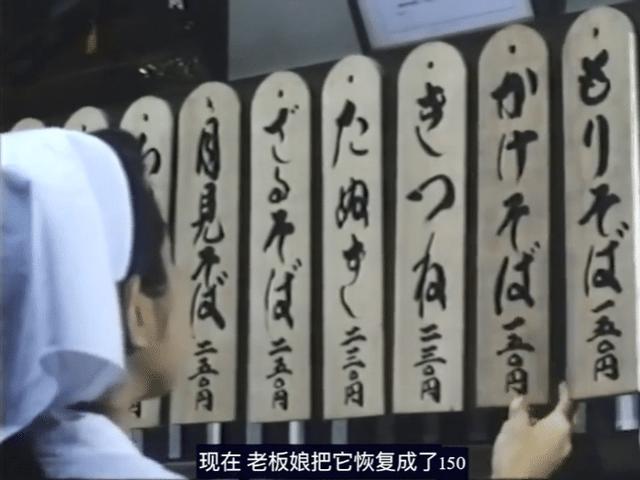 もりそば一五〇円
かけそば一五〇円
きつね二三〇円
たぬき二三〇円
ざるそば二五〇円
月見そば二五〇円
现在 老板娘把它恢复成了150